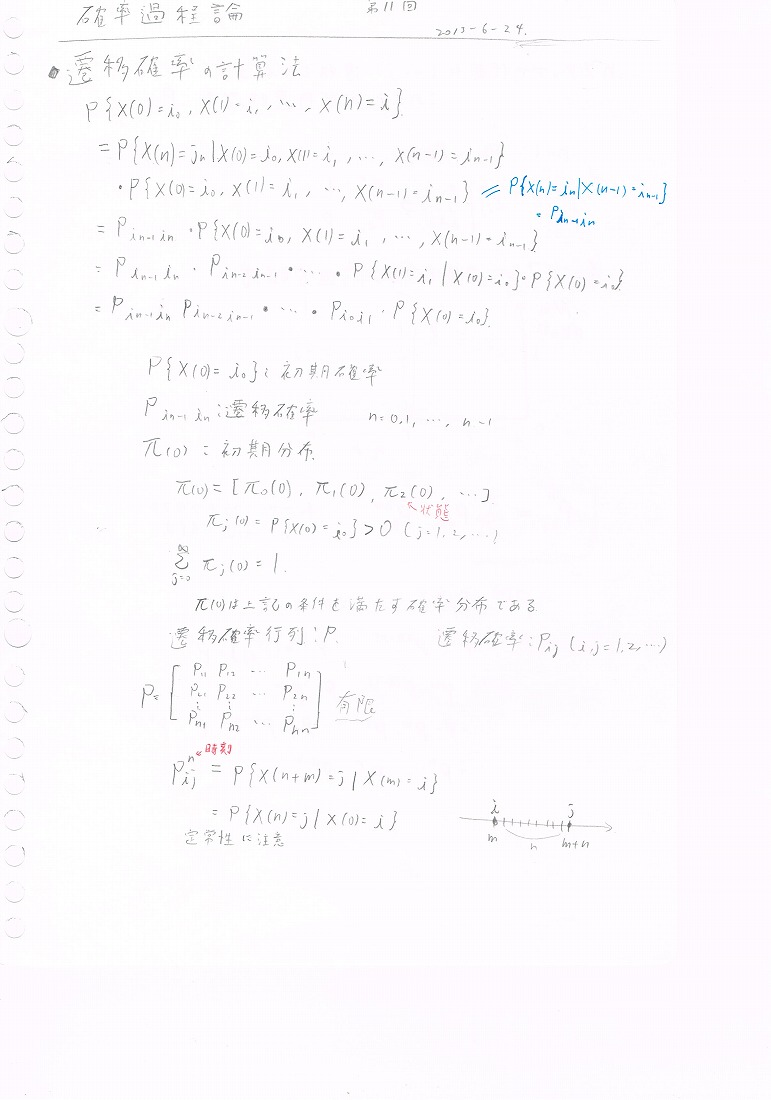 確率過程論 第11回
2013-6-24.
遷移確率の計算法
P{X(0)=i₀, X(1)=i₁, ..., X(n)=i}
=P{X(n)=jₙ|X(0)=i₀, X(1)=i₁, ..., X(n-1)=iₙ₋₁}
・P{X(0)=i₀, X(1)=i₁, ..., X(n-1)=iₙ₋₁} P{X(n)=iₙ|X(n-1)=iₙ₋₁}
= Piₙ₋₁iₙ
= Piₙ₋₁iₙ・P{X(0)=i₀, X(1)=i₁, ..., X(n-1)=iₙ₋₁}
= Piₙ₋₁iₙ・Piₙ₋₂iₙ₋₁・...・P{X(1)=i₁|X(0)=i₀}・P{X(0)=i₀}
= Piₙ₋₁iₙ Piₙ₋₂iₙ₋₁・...・Pi₀i₁・P{X(0)=i₀}
P{X(0)=i₀}:初期確率
Piₙ₋₁iₙ:遷移確率 n=0,1, ..., n-1
π(0):初期分布
π(0)=[π₀(0), π₁(0), π₂(0), ...]
状態
πⱼ(0)=P{X(0)=i₀}>0 (j=1,2,...)
∞
Σ πⱼ(0)=1.
j=0
π(0)は上記の条件を満たす確率分布である
遷移確率行列:P. 遷移確率:Pij (i,j=1,2,...)
P₁₁ P₁₂ ... P₁ₙ
P= P₂₁ P₂₂ ... P₂ₙ 有限
⋮ ⋮ ⋮
Pₙ₁ Pₙ₂ ... Pₙₙ
時刻
Pⁿij = P{X(n+m)=j|X(m)=i}
= P{X(n)=j|X(0)=i} i j
定常性に注意 m n m+n